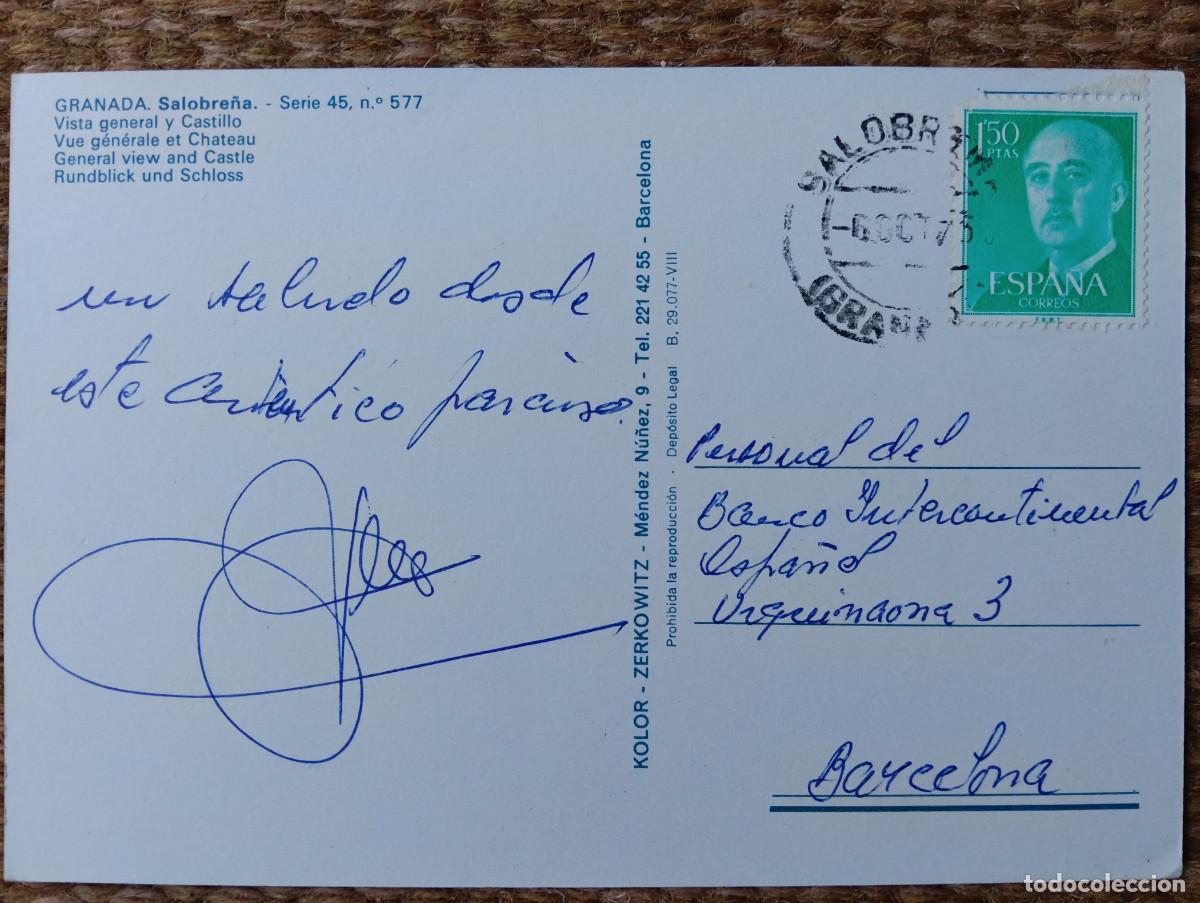 GRANADA. Salobreña. - Serie 45, n.º 577
Vista general y Castillo
Vue générale et Chateau
General view and Castle
Rundblick und Schloss
un saludo desde
este paraiso.
KOLOR - ZERKOWITZ - Méndez Núñez, 9 - Tel. 221 42 55 - Barcelona
Prohibida la reproducción - Depósito Legal B. 29.077-VIII
SALOBREÑA
-6.OCT.73
(GRANA
1'50
PTAS
ESPAÑA
CORREOS
F.N.M.T.
Personal del
Banco Intercontinental
Español
Urquinaona 3
Barcelona
todocoleccion